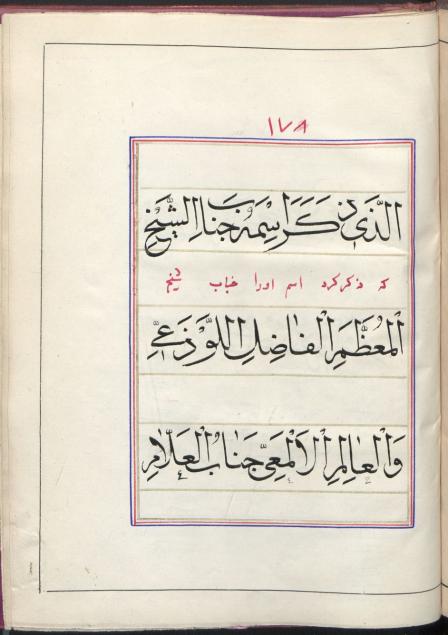 ١٧٨
الَّذي ذَكَرَ اسْمَهُ جَنابِ الشَّيْخِ
که ذکر کرد اسم اورا جناب شیخ
الْمُعَظَّمِ الْفٰاضِلِ اللَّوْذَعيِّ
وَالْعٰالِمِ الْاَلْمَعيِّ جَنٰابُ الْعَلّٰامِ